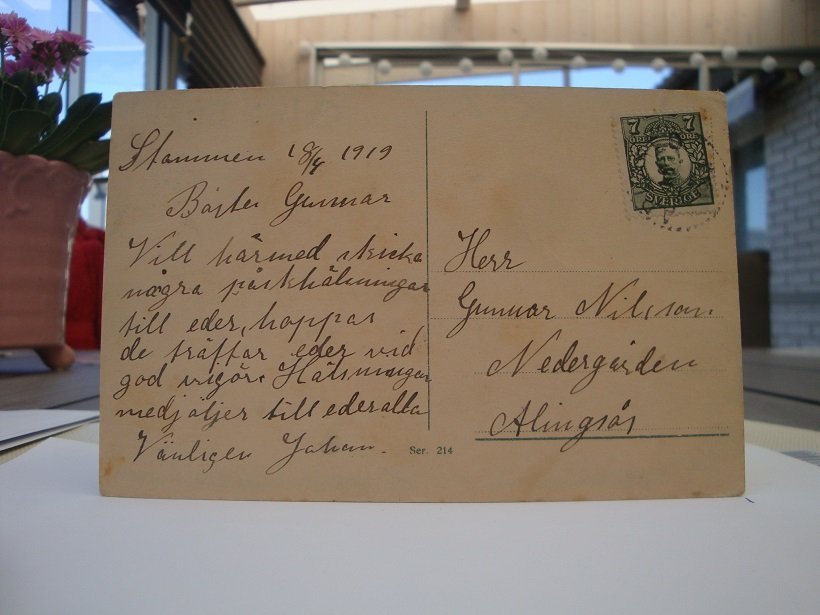 Stommen 18/4 1919
Bäste Gunnar
Vill härmed skicka
några påskhälsningar
till eder, hoppas
de träffar eder vid
god vigör. Hälsningar
medföljer till eder alla
Vänligen Johan.
Ser. 214
7 7
ÖRE ÖRE
SVERIGE
Herr
Gunnar Nilsson
Nedergården
Alingsås